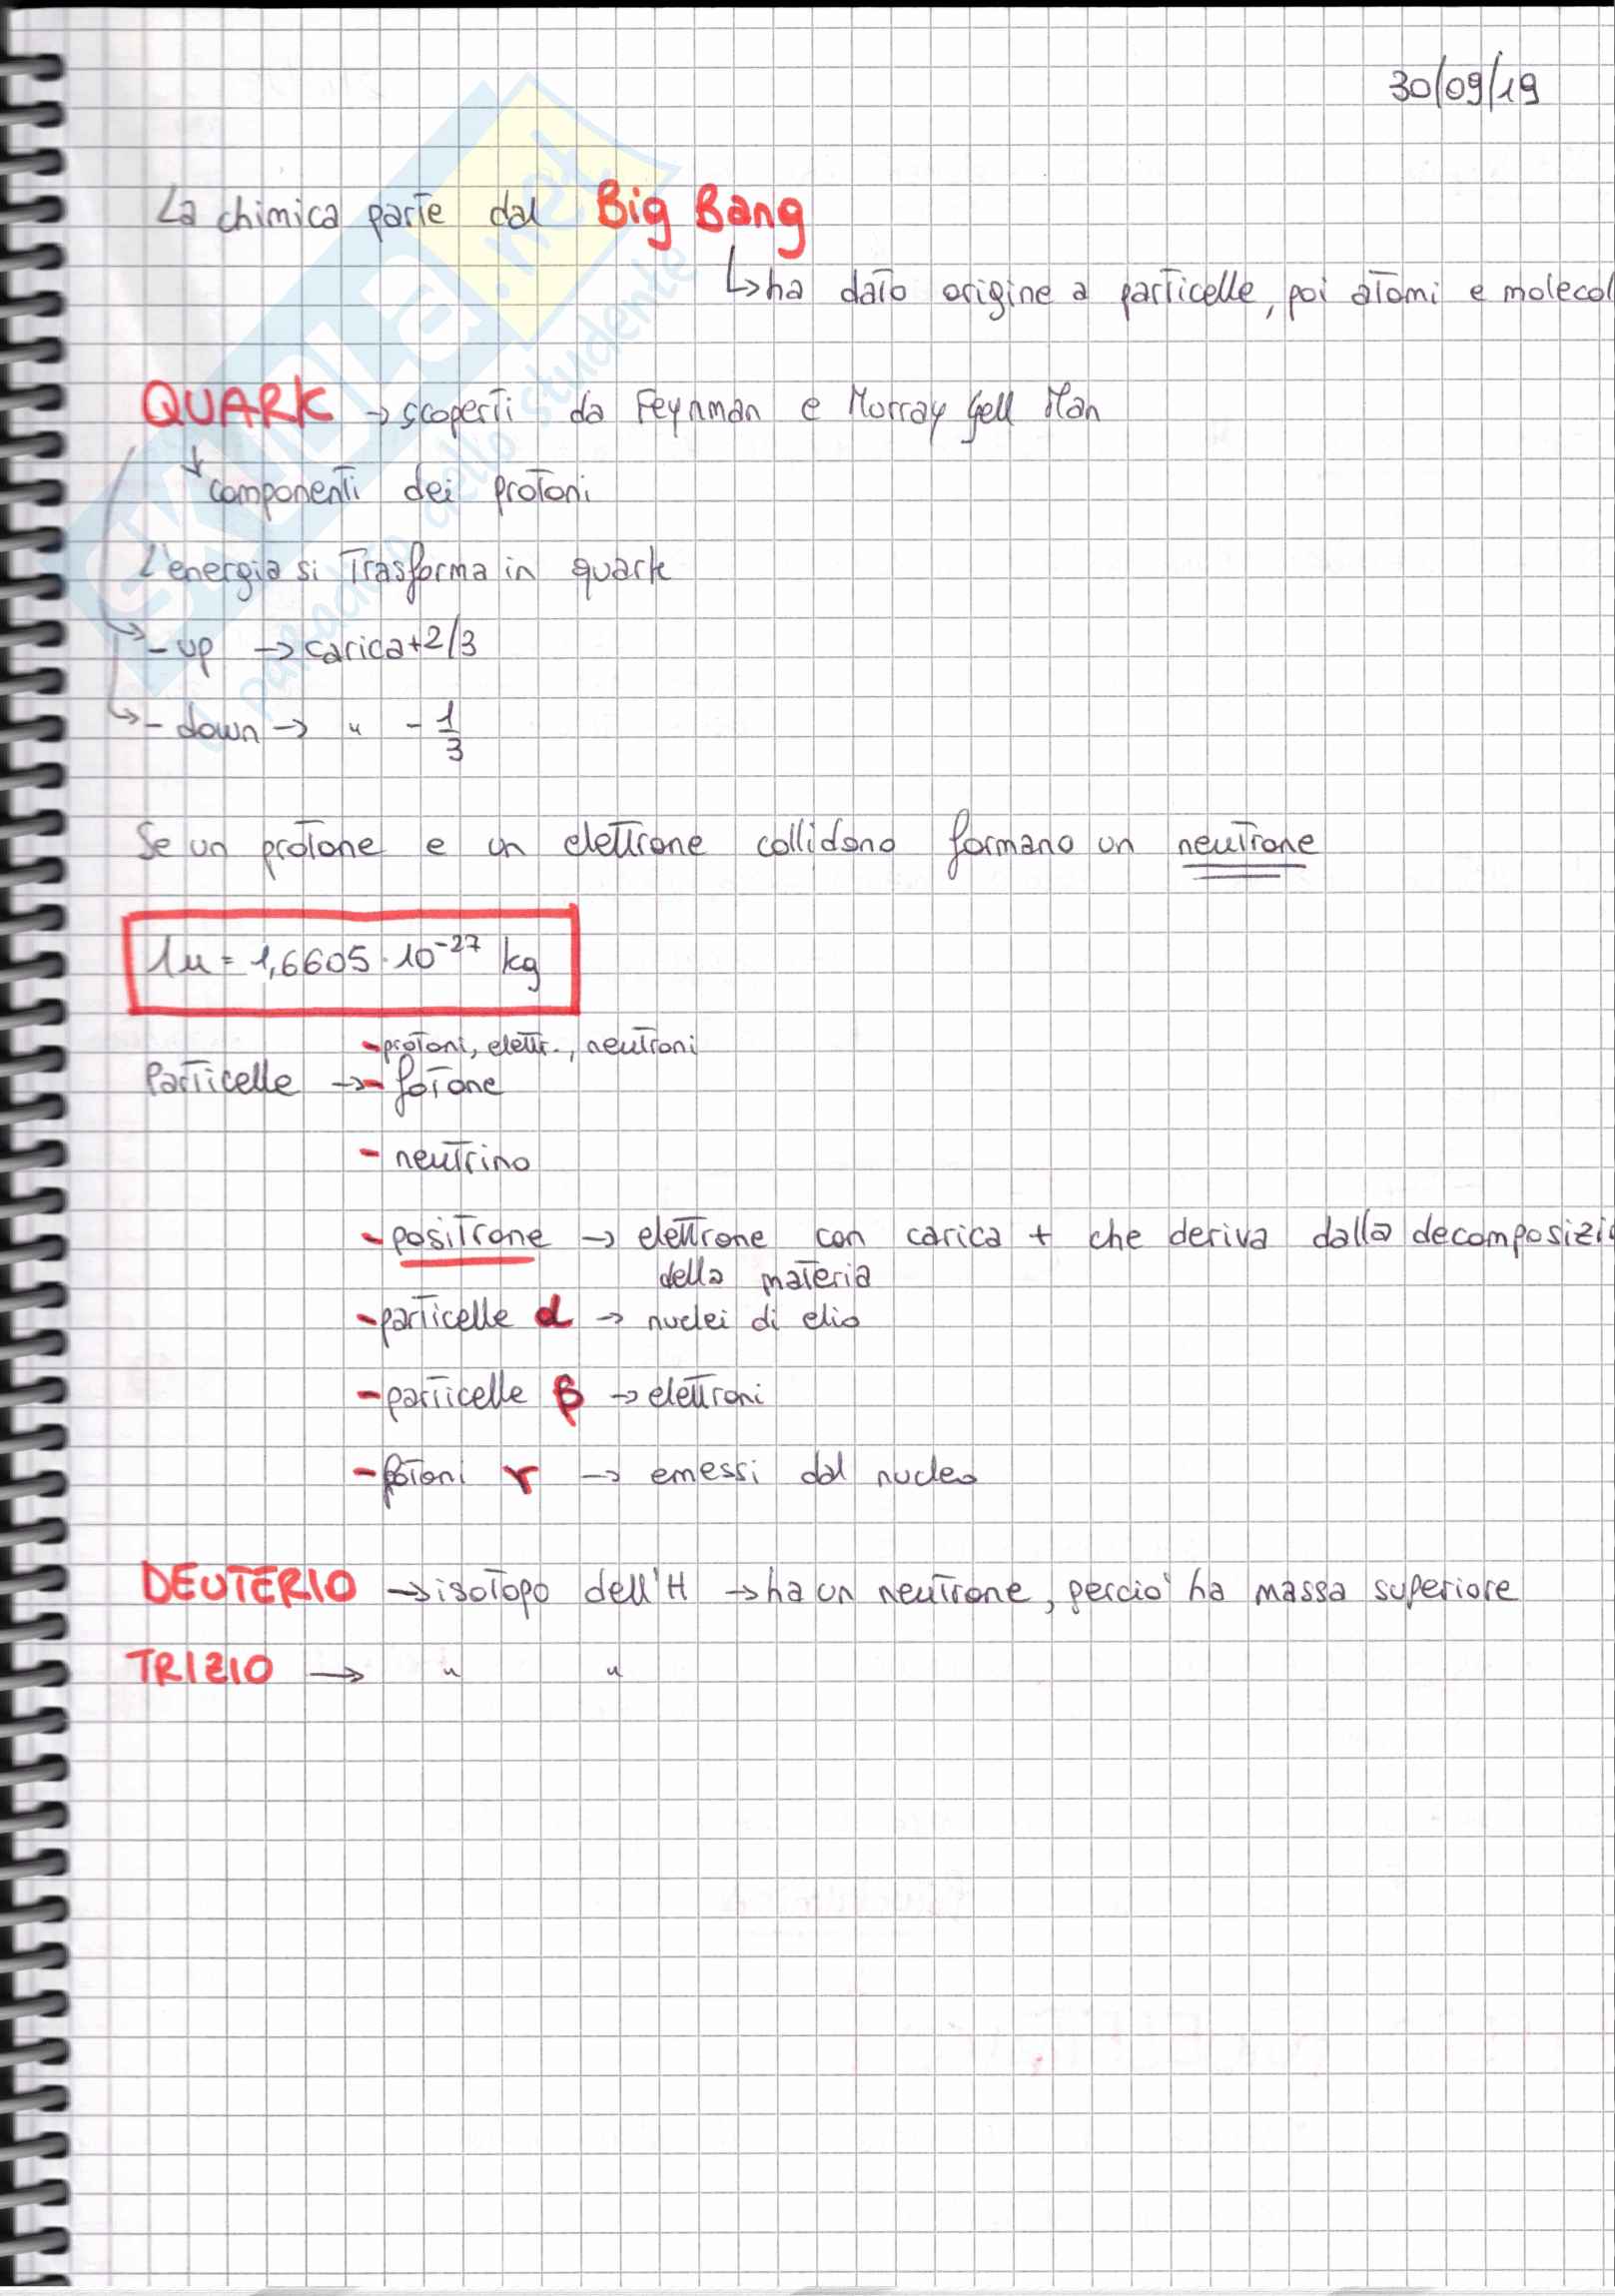 30/09/19
La chimica parte dal Big Bang
↳ ha dato origine a particelle, poi atomi e molecol
QUARK → scoperti da Feynman e Murray Gell Man
componenti dei protoni
L'energia si trasforma in quark
- up → carica +2/3
- down → " - 1/3
Se un protone e un elettrone collidono formano un neutrone
1u = 1,6605 · 10⁻²⁷ kg
- protoni, elettr., neutroni
Particelle → - fotone
- neutrino
- positrone → elettrone con carica + che deriva dalla decomposizi
della materia
- particelle α → nuclei di elio
- particelle β → elettroni
- fotoni γ → emessi dal nucleo
DEUTERIO → isotopo dell'H → ha un neutrone, perciò ha massa superiore
TRIZIO → " "
SKUOLA.net
il paradiso dello studente